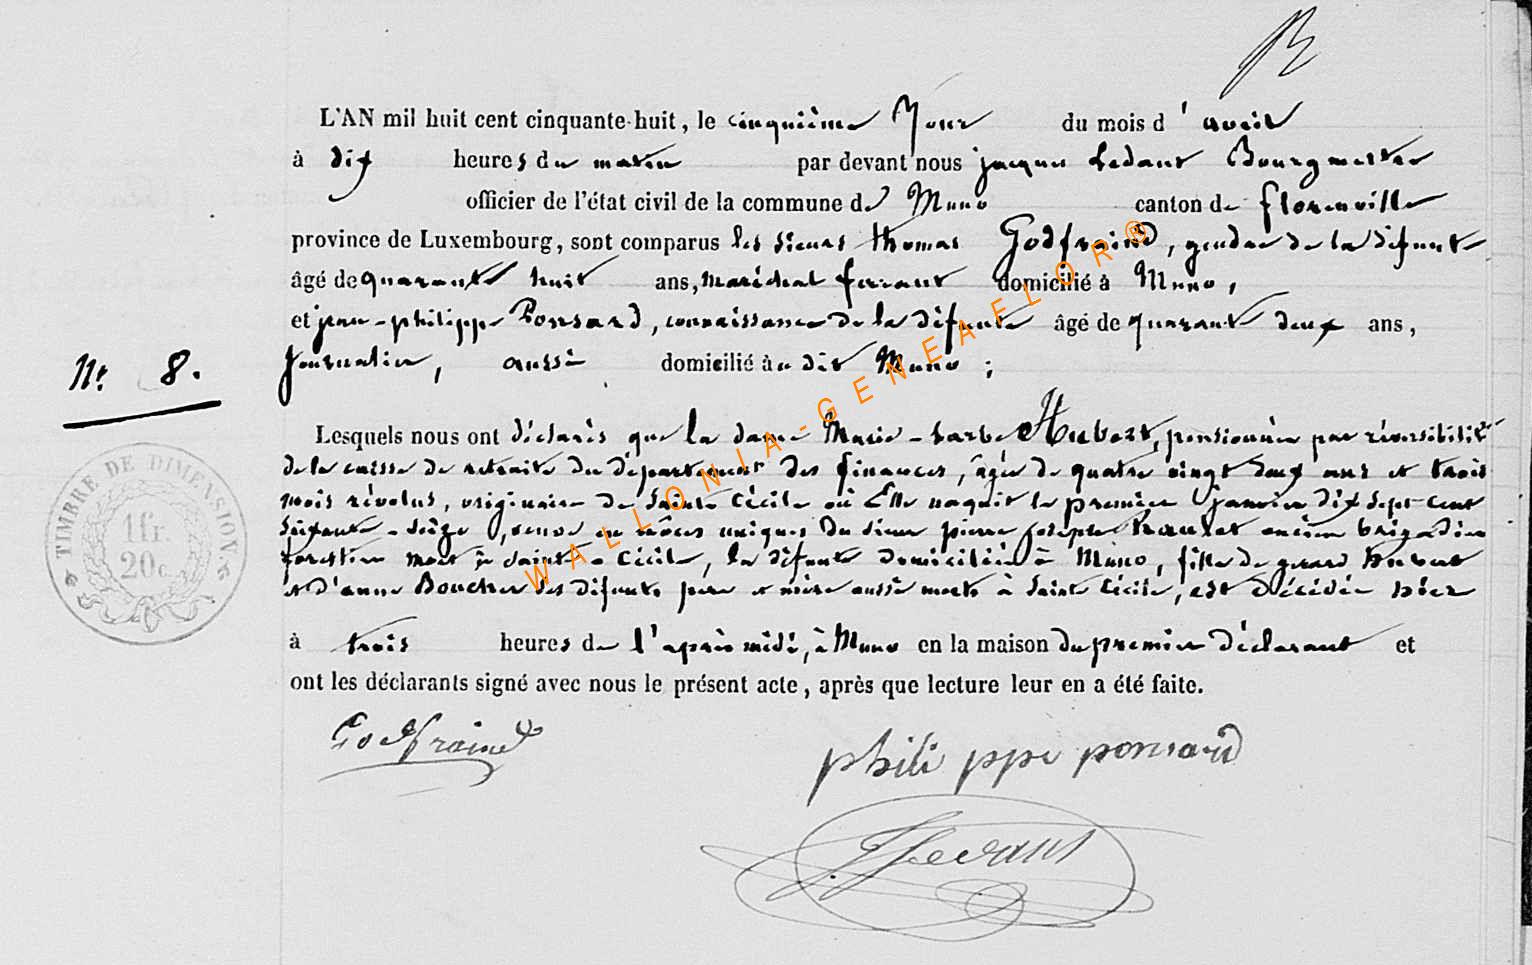 L'AN mil huit cent cinquante-huit, le cinquième Jour du mois d'avril
à dix heures du matin par devant nous jacques Ledant Bourgmestre
officier de l'état civil de la commune de Muno canton de florenville
province de Luxembourg, sont comparus les sieurs thomas Godfroind, gendre de la défunte
âgé de quarante huit ans, maréchal ferrant domicilié à Muno,
et jean-philippe Ponsard, connaissance de la défunte âgé de quarante deux ans,
Nr 8.
journalier, aussi domicilié au dit Muno;
Lesquels nous ont déclarés que la dame Marie-barbe Hubert, pensionnée par réversibilité
de la caisse de retraite du département des finances, âgée de quatre vingt deux ans et trois
mois révolus, originaire de Sainte Cécile où Elle naquit le premier janvier dix sept cent
Soixante-Seize, veuve en nôces uniques du Sieur pierre joseph ancien brigadier
forestier mort à Sainte-Cécile, la défunte domiciliée à Muno, fille de gerard Hubert
et d'anne Boucher les défunts père et mère aussi morts à Sainte Cécile, est décédée hier
à trois heures de l'après midi, à Muno en la maison du premier déclarant et
ont les déclarants signé avec nous le présent acte, après que lecture leur en a été faite.
TIMBRE DE DIMENSION.
1fr.
20c.
Godfroind
philippe ponsard
JLedant
WALLONIA-GENEAFLOR®